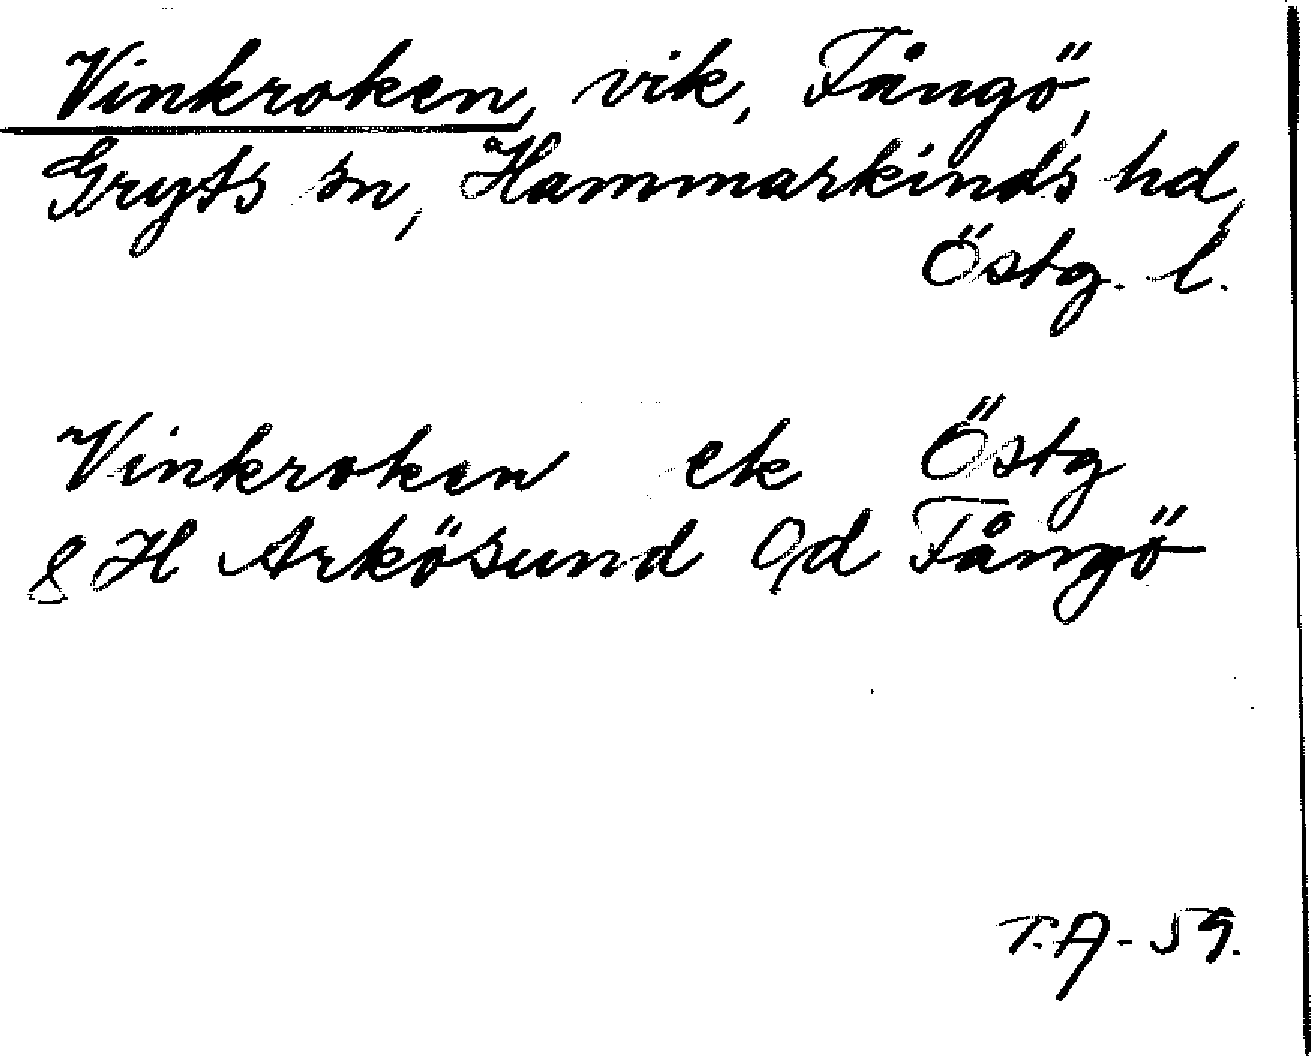 Vinkroken, vik, Fångö,
Gryts sn, Hammarkinds hd,
Östg. l.
Vinkroken ek Östg
8 H Arkösund Gd Fångö
T.A-59.